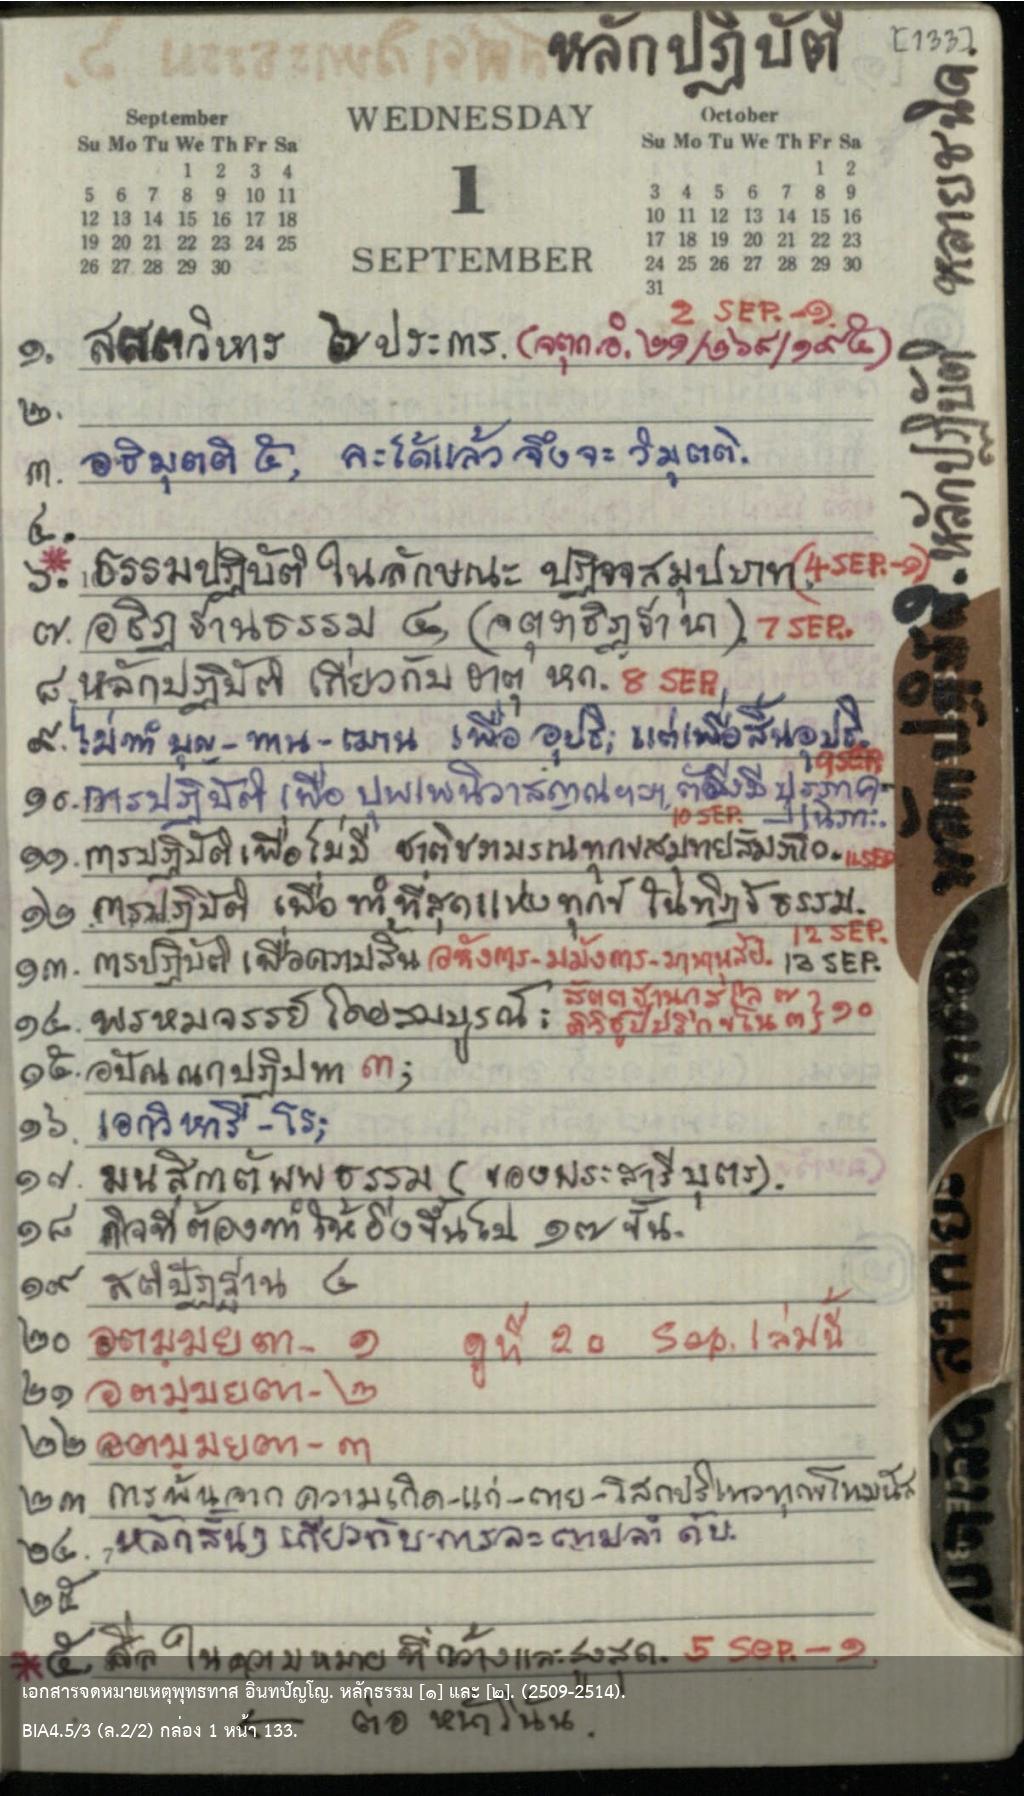 หลักปฏิบัติ [133].
September
Su Mo Tu We Th Fr Sa
1 2 3 4
5 6 7 8 9 10 11
12 13 14 15 16 17 18
19 20 21 22 23 24 25
26 27 28 29 30
WEDNESDAY
1
SEPTEMBER
October
Su Mo Tu We Th Fr Sa
1 2
3 4 5 6 7 8 9
10 11 12 13 14 15 16
17 18 19 20 21 22 23
24 25 26 27 28 29 30
31
2 SEP.-๑.
๑. สตตวิหาร ๖ ประการ. (จตุก.อํ. ๒๑/๒๖๙/๑๙๕)
๒.
๓. อธิมุตติ ๕, ละได้แล้ว จึงจะ วิมุตติ.
๔.
๖. ธรรมปฏิบัติ ในลักษณะ ปฏิจจสมุปบาท. (4 SEP.-๑)
๗. อธิฏฐานธรรม ๔, (จตุราธิฏฐานา). 7 SEP.
๘. หลักปฏิบัติ เกี่ยวกับ ธาตุ หก. 8 SEP.
๙. ไม่ทำ บุญ-ทาน-ฌาน เพื่อ อุปธิ; แต่เพื่อสิ้นอุปธิ.
9 SEP.
๑๐. การปฏิบัติ เพื่อ ปุพเพนิวาสญาณฯลฯ,
10 SEP.
๑๑. การปฏิบัติ เพื่อไม่มี ชาติชรามรณทุกขสมุทยสัมภโว. 11 SEP.
๑๒ การปฏิบัติ เพื่อ ทำที่สุดแห่ง ทุกข์ ในทิฏฐธรรม.
12 SEP.
๑๓. การปฏิบัติ เพื่อความสิ้น อหังการ-มมังการ-มานานุสัย. 13 SEP.
๑๔. พรหมจรรย์ โดยสมบูรณ์ : สัตตฐานกุสโล ๗ ติวิธูปปริกขีโน ๓ } ๑๐
๑๕. อปัณณกปฏิปทา ๓;
๑๖. เอกวิหารี - โร;
๑๗. มนสิกาตัพพธรรม ( ของพระสารีบุตร).
๑๘ กิจที่ต้องทำให้ยิ่งขึ้นไป ๑๗ ขั้น.
๑๙ สติปัฏฐาน ๔
๒๐ อตมฺมยตา - ๑ ดูที่ 20 Sep. เล่มนี้
๒๑ อตมฺมยตา - ๒
๒๒ อตมฺมยตา - ๓
๒๓ การพ้นจาก ความเกิด-แก่-ตาย-โสกปริเทวทุกขโทมนัส
๒๔. หลักสั้นๆ เกี่ยวกับการละตามลำดับ.
๒๕
* ๕. ศีล ในความหมาย ที่กว้างและสูงสุด. 5 SEP.-๑
ต่อ หน้าโน้น.
หลักปฏิบัติ. หลักปฏิบัติ หลายชนิด.
เอกสารจดหมายเหตุพุทธทาส อินทปัญโญ. หลักธรรม [๑] และ [๒]. (2509-2514).
BIA4.5/3 (ล.2/2) กล่อง 1 หน้า 133.